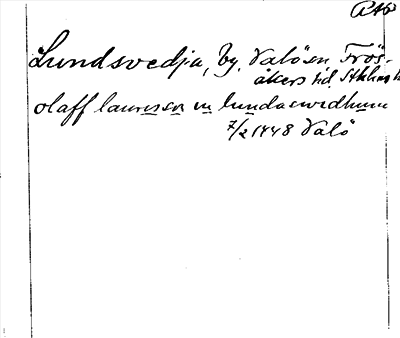 Lundsvedja, by. Valö sn Frös-
åkers hd. Sthlms l.
olaff laurisson in lunda swidhum
7/2 1448 Valö